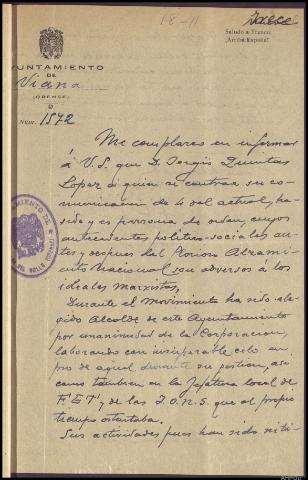 18-11
Saludo a Franco:
¡Arriba España!
AYUNTAMIENTO
DE
Viana
(ORENSE)
NÚM. 1572
Me complazco en informar
á V.S. que D. Sergio Quintas
Lopez á quien se contrae su co-
municacion de 4 del actual, ha
sido y es persona de orden, cuyos
antecedentes politico-sociales an-
tes y despues del Glorioso Alzami-
ento Nacional son adversos á los
ideales marxistas,
Durante el Movimiento ha sido ele-
gido Alcalde de este Ayuntamiento
por unanimidad de la Corporacion,
laborando con insuperable celo en
pro de aquel durante su gestion, asi
como tambien en la Jefatura local de
F.E.T. y de las J.O.N.S. que al propio
tiempo ostentaba.
Sus actividades pues han sido niti-